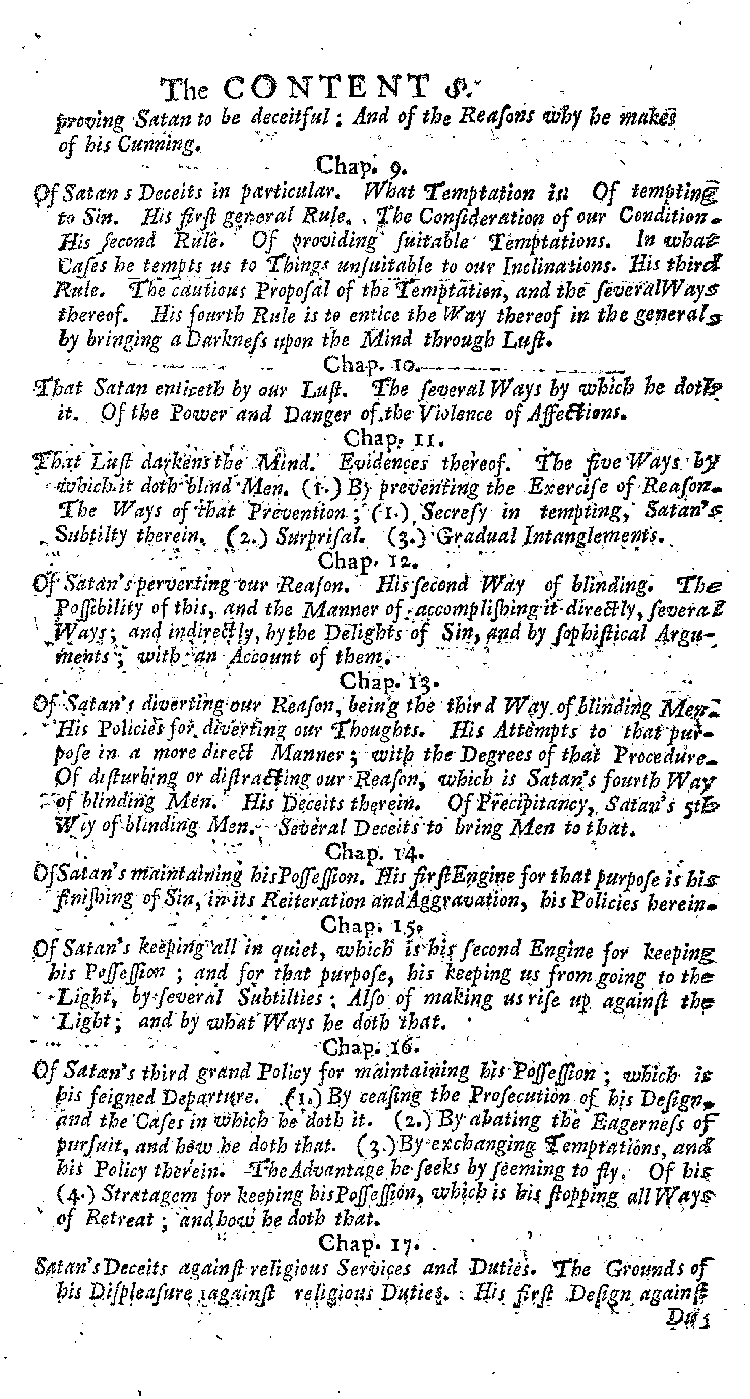 The CONTENTS.
proving Satan to be deceitful: And of the Reaſons why he makes
of his Cunning.
Chap. 9.
Of Satans Deceits in particular. What Temptation is. Of tempting
to Sin. His firſt general Rule. The Conſideration of our Condition.
His ſecond Rule. Of providing ſuitable Temptations. In what
Caſes he tempts us to Things unſuitable to our Inclinations. His third
Rule. The cautious Propoſal of the Temptation, and the ſeveral Ways
thereof. His fourth Rule is to entice the Way thereof in the general,
by bringing a Darkneſs upon the Mind through Luſt.
Chap. 10.
That Satan enticeth by our Luſt. The ſeveral Ways by which he doth
it. Of the Power and Danger of the Violence of Affections.
Chap. 11.
That Luſt darkens the Mind. Evidences thereof. The five Ways by
which it doth blind Men. (1.) By preventing the Exerciſe of Reaſon.
The Ways of that Prevention; (1.) Secreſy in tempting, Satan's
Subtilty therein. (2.) Surpriſal. (3.) Gradual Intanglements.
Chap. 12.
Of Satan's perverting our Reaſon. His ſecond Way of blinding. The
Poſſibility of this, and the Manner of accompliſhing it directly, ſeveral
Ways; and indirectly, by the Delights of Sin, and by ſophiſtical Argu-
ments; with an Account of them.
Chap. 13.
Of Satan's diverting our Reaſon, being the third Way of blinding Men.
His Policies for diverting our Thoughts. His Attempts to that pur-
poſe in a more direct Manner; with the Degrees of that Procedure.
Of diſturbing or diſtracting our Reaſon, which is Satan's fourth Way
of blinding Men. His Deceits therein. Of Precipitancy, Satan's 5th
Way of blinding Men. Several Deceits to bring Men to that.
Chap. 14.
Of Satan's maintaining his Poſſeſſion. His firſt Engine for that purpoſe is his
finiſhing of Sin, in its Reiteration and Aggravation, his Policies herein.
Chap. 15.
Of Satan's keeping all in quiet, which is his ſecond Engine for keeping
his Poſſeſſion; and for that purpoſe, his keeping us from going to the
Light, by ſeveral Subtilties; Alſo of making us riſe up againſt the
Light; and by what Ways he doth that.
Chap. 16.
Of Satan's third grand Policy for maintaining his Poſſeſſion; which is
his feigned Departure. (1.) By ceaſing the Proſecution of his Deſign,
and the Caſes in which he doth it. (2.) By abating the Eagerneſs of
purſuit, and how he doth that. (3.) By exchanging Temptations, and
his Policy therein. The Advantage he ſeeks by ſeeming to fly. Of his
(4.) Stratagem for keeping his Poſſeſſion, which is his ſtopping all Ways
of Retreat; and how he doth that.
Chap. 17.
Satan's Deceits againſt religious Services and Duties. The Grounds of
his Diſpleaſure againſt religious Duties. His firſt Deſign againſt